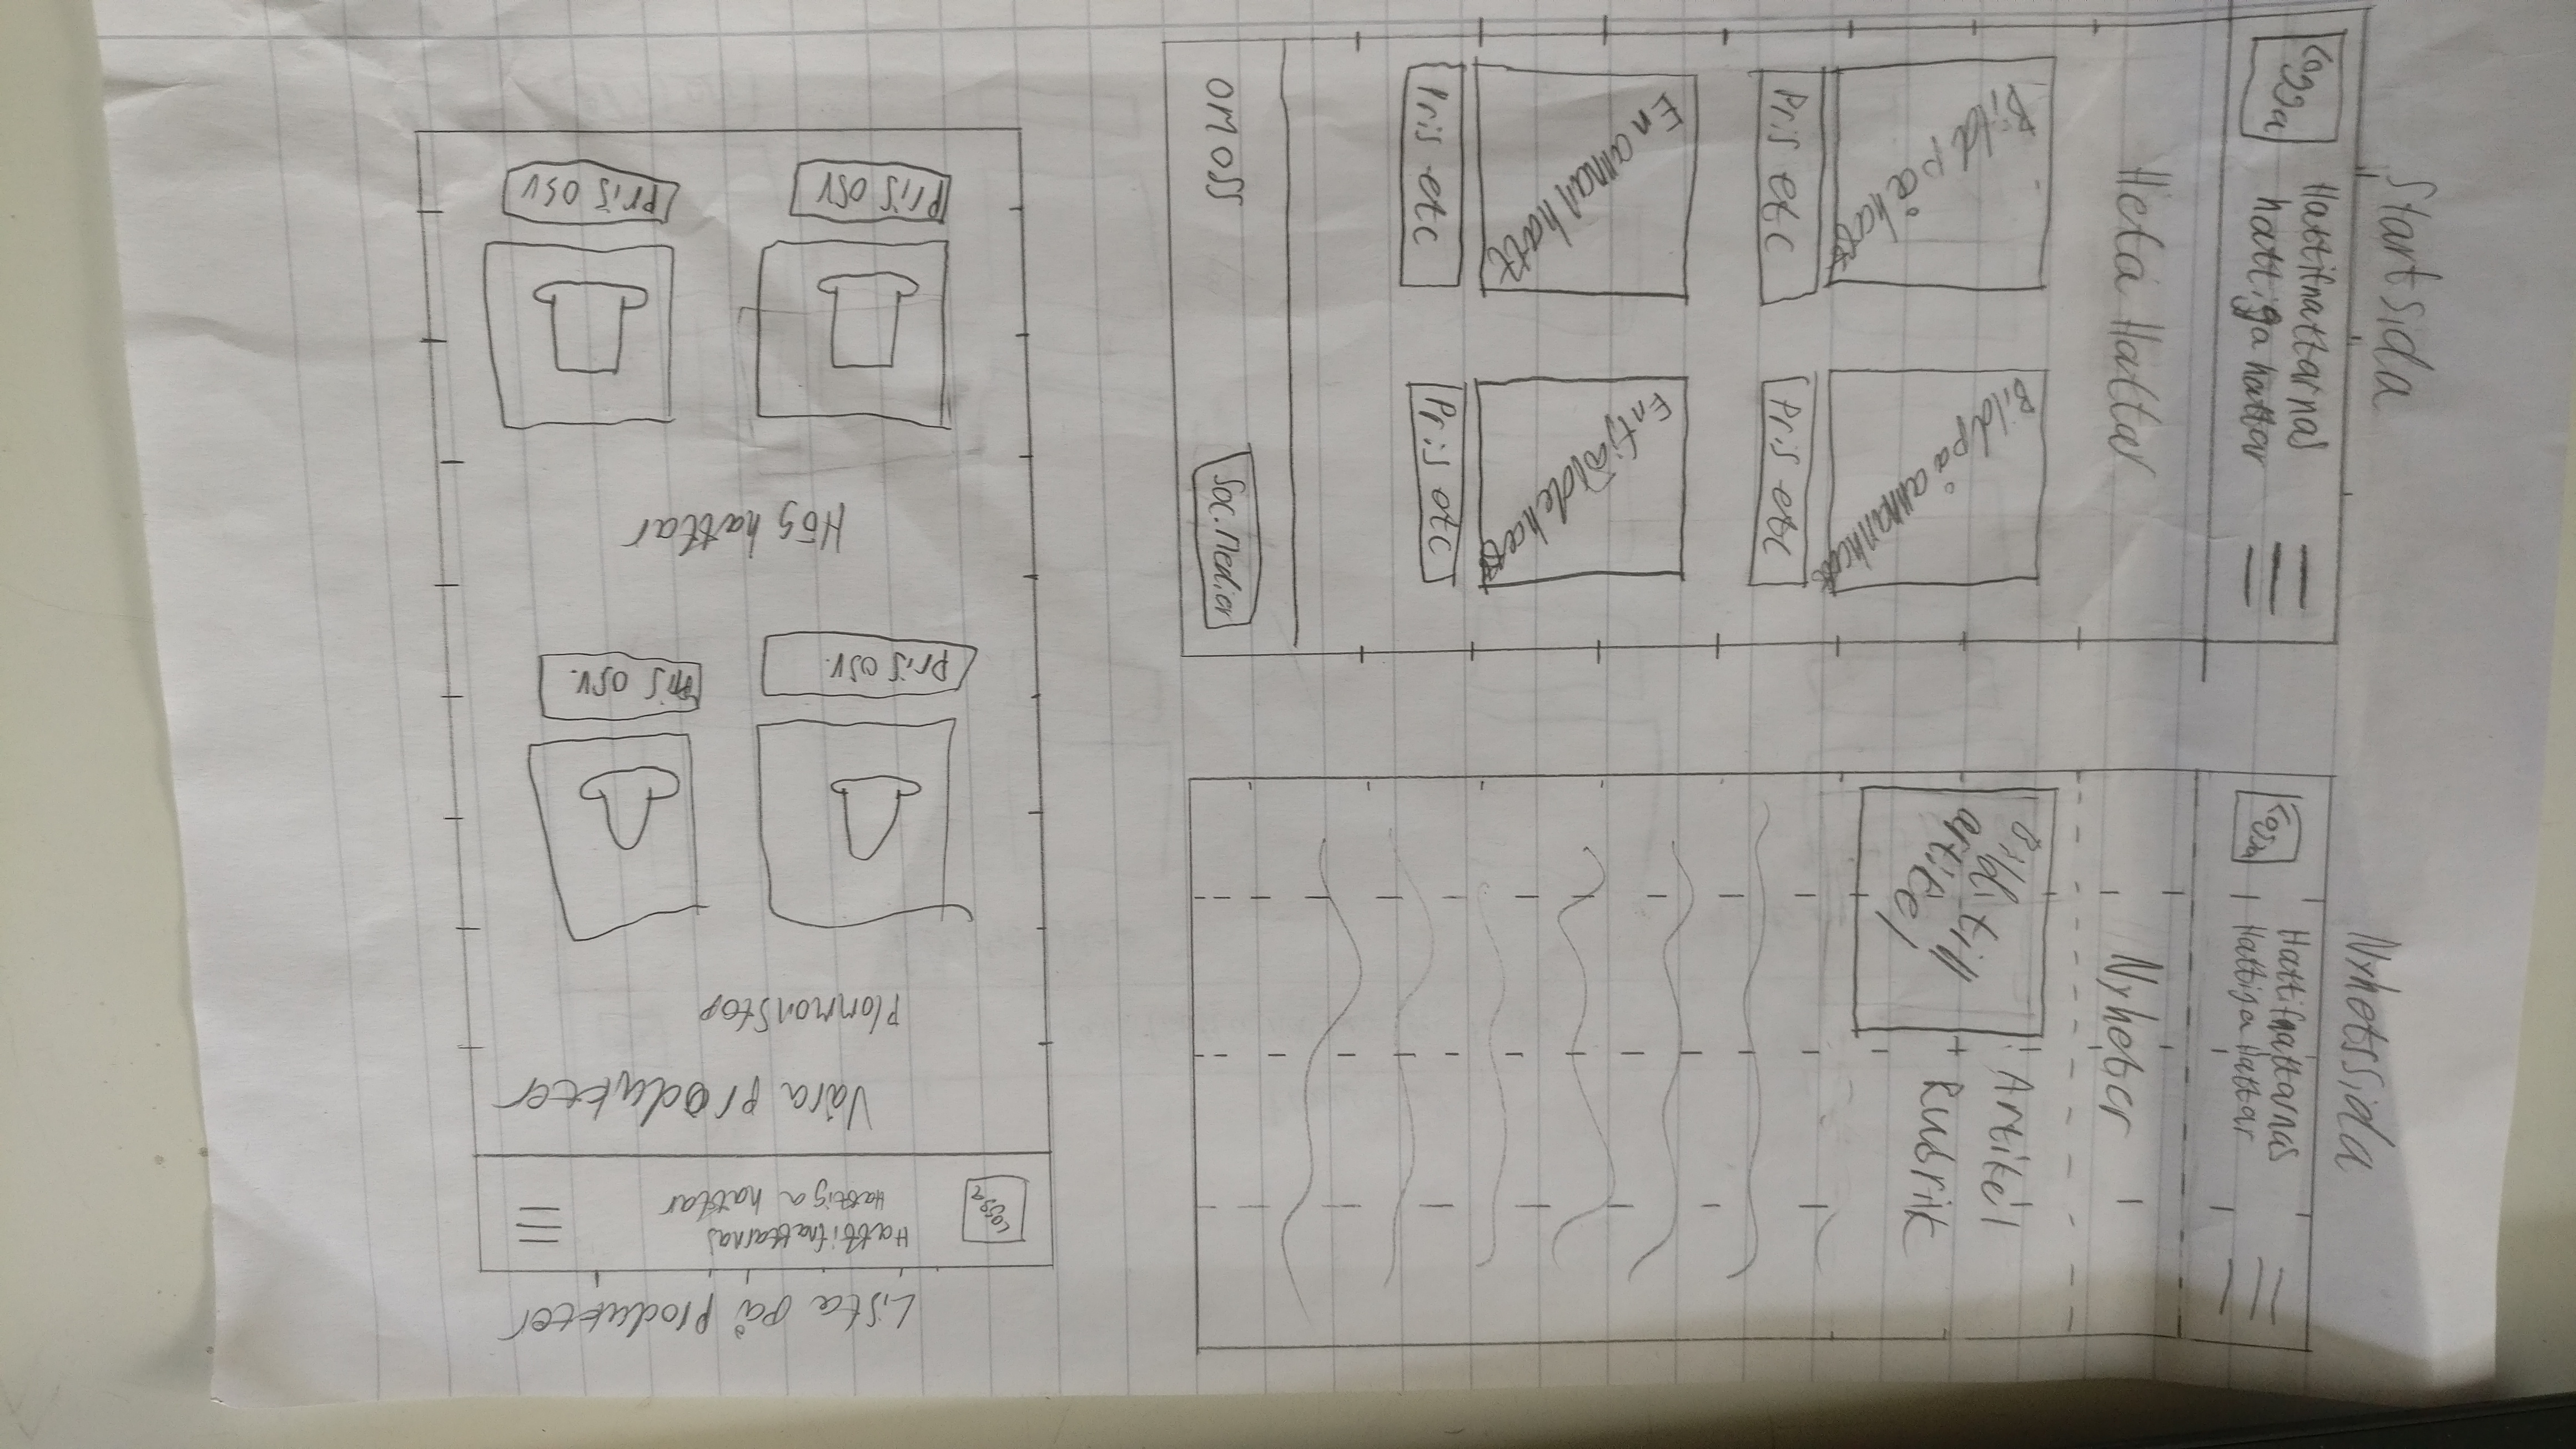 Startsida
Logga
Hattifnattarnas
hattiga hattar
Heta Hattar
Bild på hatt
Bild på annan hatt
Pris etc
Pris etc
En annan hatt
En fjärde hatt
Pris etc
Pris etc
OM OSS
Soc. Medier
Nyhetssida
Logga
Hattifnattarnas
Hattiga Hattar
Nyheter
Bild till
artikel
Artikel
Rubrik
Lista på Produkter
Logga
Hattifnattarnas
Hattiga hattar
Våra produkter
Plommonstop
Pris osv.
Pris osv.
Hög hattar
Pris osv
Pris osv